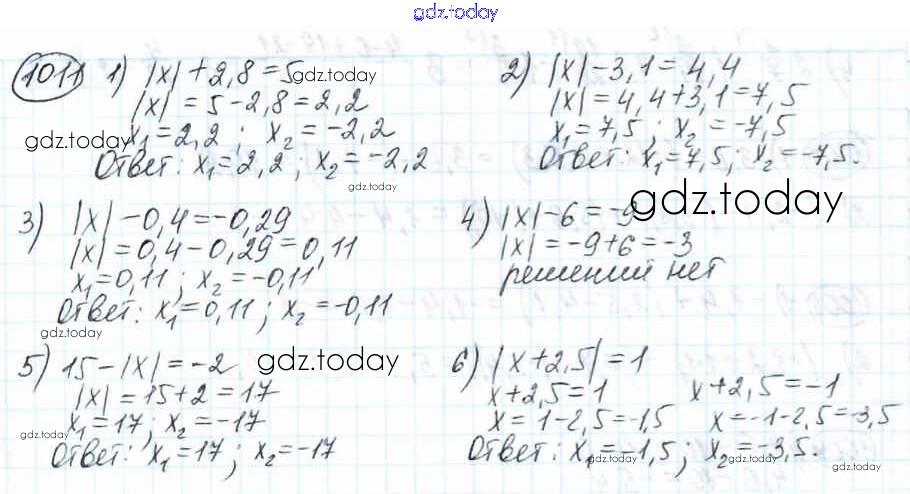 gdz.today
1011 1) |x| + 2,8 = 5 gdz.today
|x| = 5 - 2,8 = 2,2
gdz.today x₁ = 2,2 ; x₂ = -2,2
Ответ: x₁ = 2,2 ; x₂ = -2,2
gdz.today
2) |x| - 3,1 = 4,4
|x| = 4,4 + 3,1 = 7,5
x₁ = 7,5 ; x₂ = -7,5
Ответ: x₁ = 7,5; x₂ = -7,5.
3) |x| - 0,4 = -0,29
|x| = 0,4 - 0,29 = 0,11
x₁ = 0,11 ; x₂ = -0,11
Ответ: x₁ = 0,11 ; x₂ = -0,11
gdz.today
4) |x| - 6 = -9 gdz.today
|x| = -9 + 6 = -3
решений нет
5) 15 - |x| = -2 gdz.today
|x| = 15 + 2 = 17
x₁ = 17 ; x₂ = -17
gdz.today
Ответ: x₁ = 17 ; x₂ = -17
6) |x + 2,5| = 1
x + 2,5 = 1 x + 2,5 = -1
x = 1 - 2,5 = -1,5 x = -1 - 2,5 = -3,5
Ответ: x₁ = -1,5 ; x₂ = -3,5.
gdz.today gdz.today gdz.today